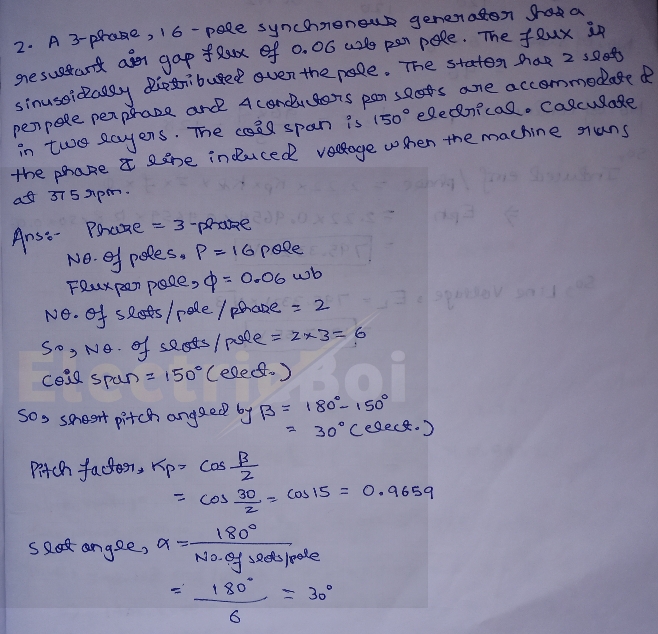 2. A 3-phase, 16-pole synchronous generator has a
resultant air gap flux of 0.06 wb per pole. The flux is
sinusoidally distributed over the pole. The stator has 2 slots
per pole per phase and 4 conductors per slots are accommodated
in two layers. The coil span is 150° electrical. Calculate
the phase & line induced voltage when the machine runs
at 375 rpm.
Ans:- Phase = 3-phase
No. of poles, P = 16 pole
Flux per pole, φ = 0.06 wb
No. of slots/pole/phase = 2
So, No. of slots/pole = 2×3 = 6
Coil span = 150° (elect.)
So, short pitch angled by β = 180° - 150°
= 30° (elect.)
Pitch factor, Kp = cos β/2
= cos 30/2 = cos 15 = 0.9659
Slot angle, α = 180°/No. of slots/pole
= 180°/6 = 30°